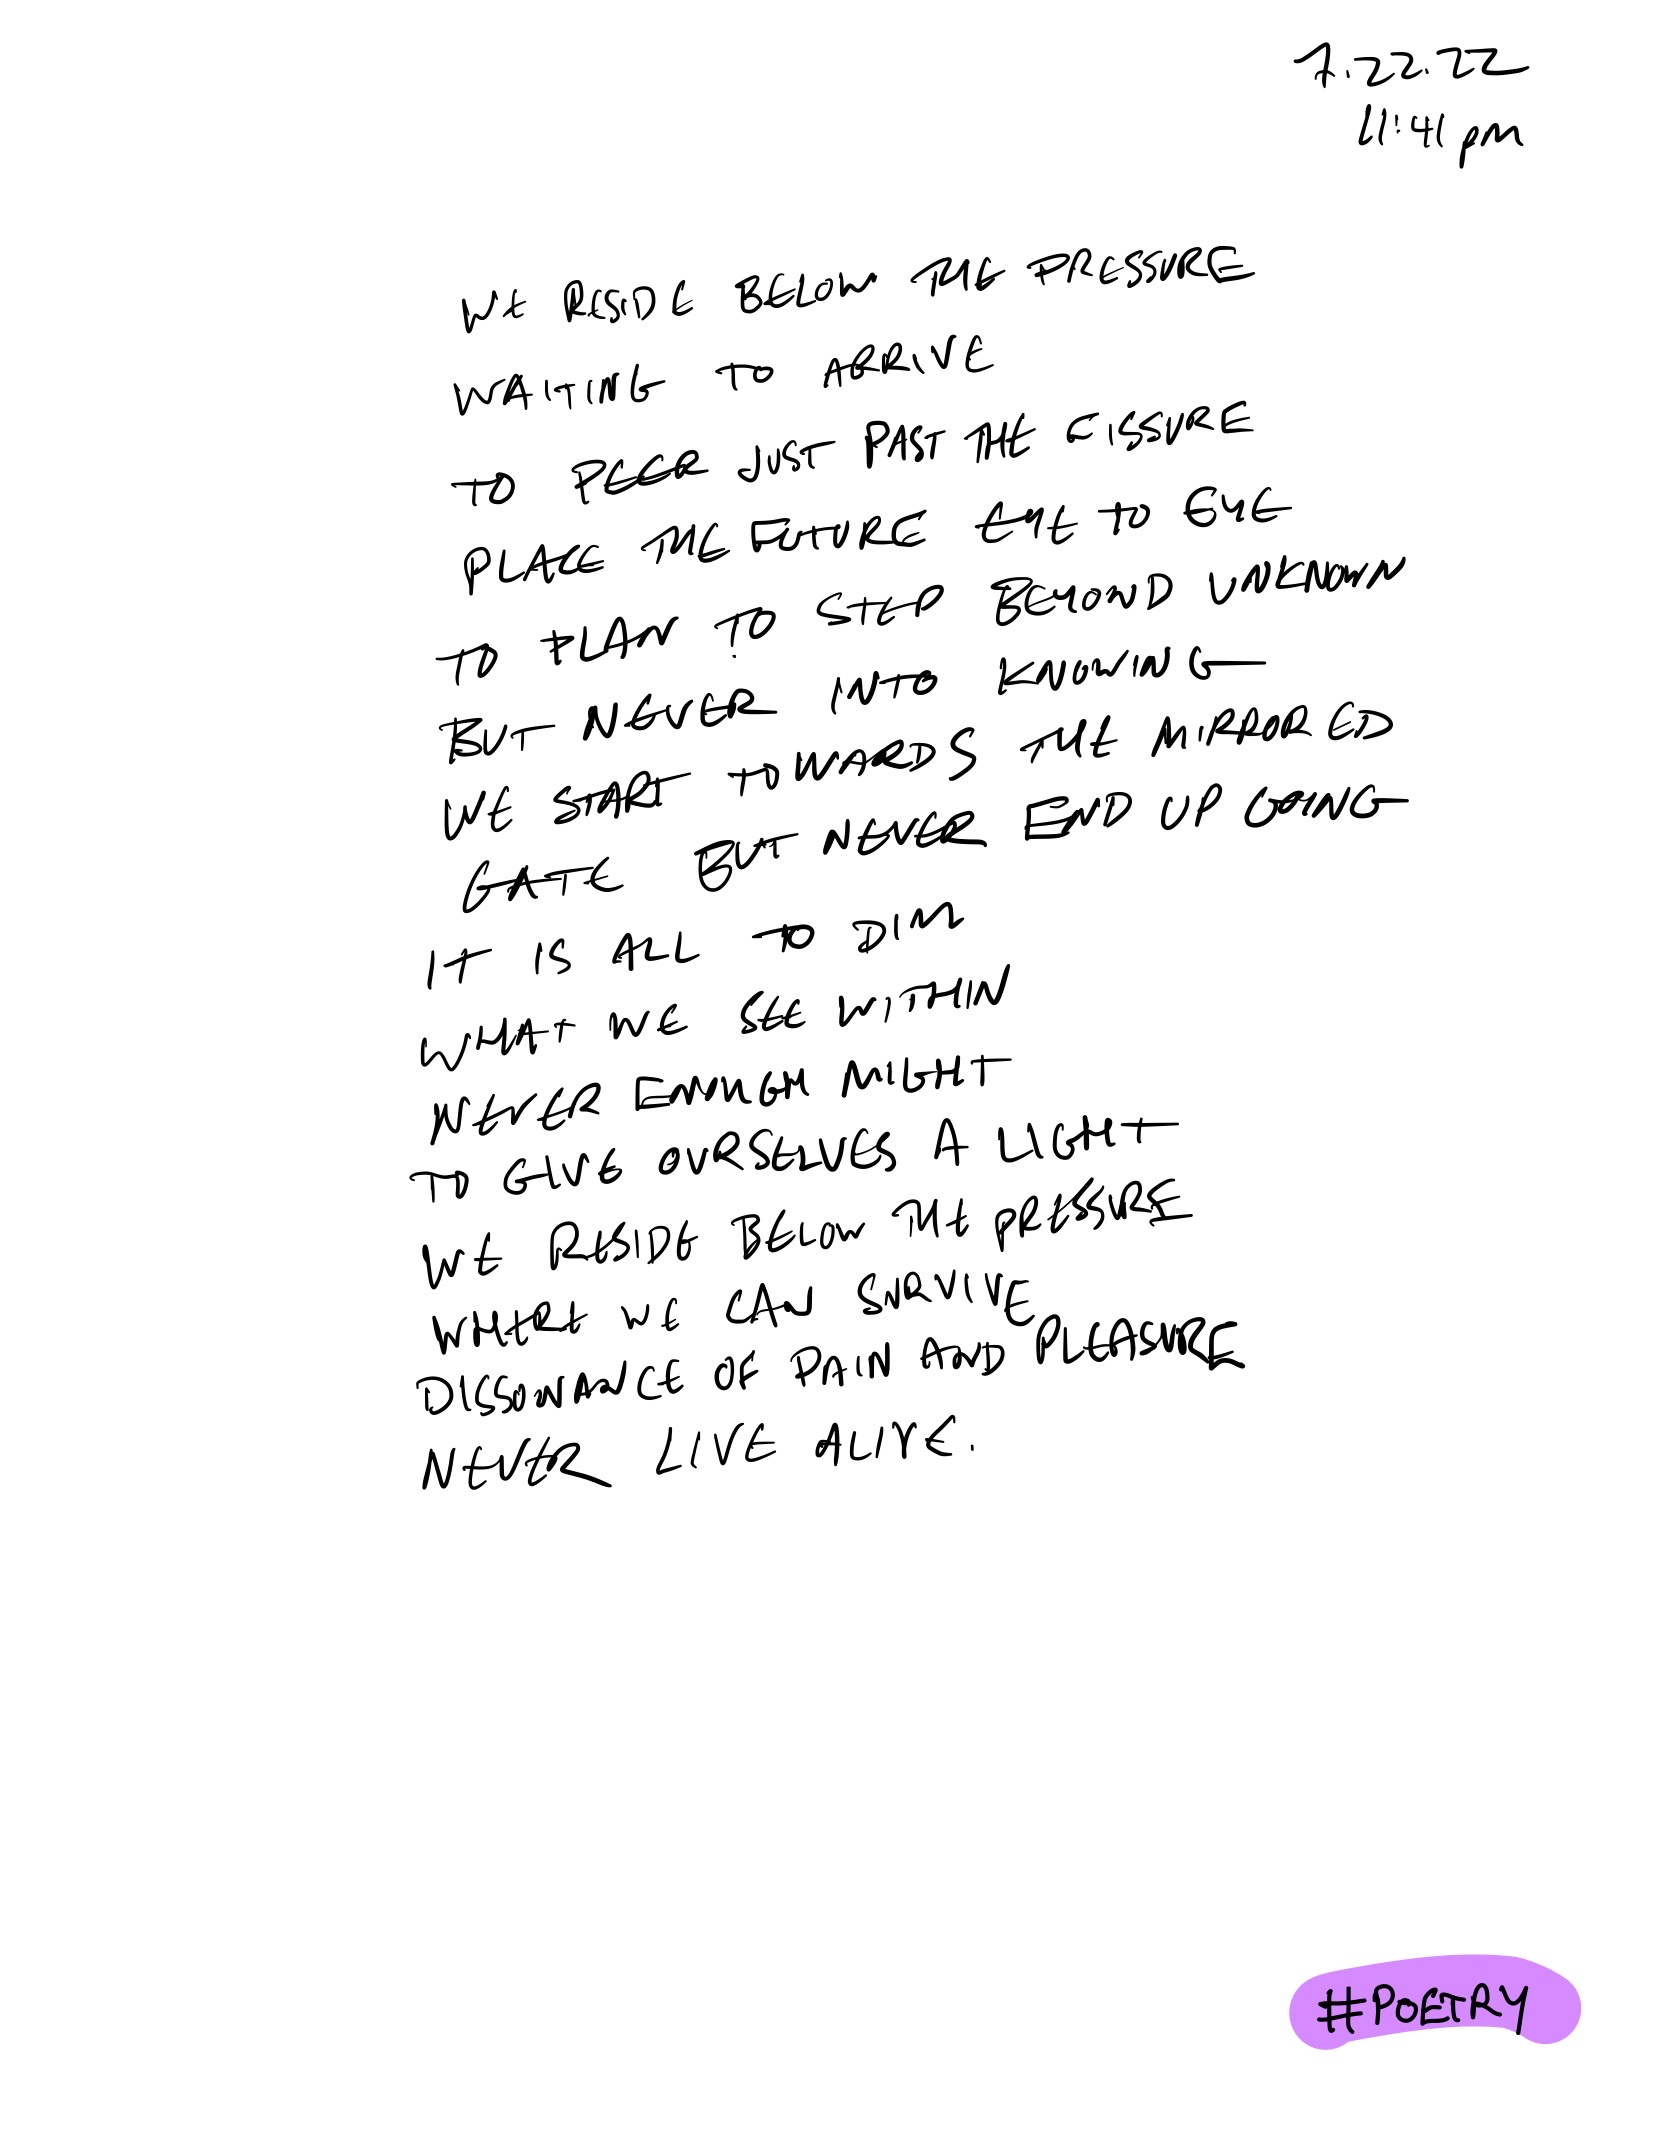 7.22.22
11:41 pm
WE RESIDE BELOW THE PRESSURE
WAITING TO ARRIVE
TO PEER JUST PAST THE FISSURE
PLACE THE FUTURE EYE TO EYE
TO PLAN TO STEP BEYOND UNKNOWN
BUT NEVER INTO KNOWING
WE START TOWARDS THE MIRRORED
GATE BUT NEVER END UP GOING
IT IS ALL TO DIM
WHAT WE SEE WITHIN
NEVER ENOUGH MIGHT
TO GIVE OURSELVES A LIGHT
WE RESIDE BELOW THE PRESSURE
WHERE WE CAN SURVIVE
DISSONANCE OF PAIN AND PLEASURE
NEVER LIVE ALIVE.
#POETRY